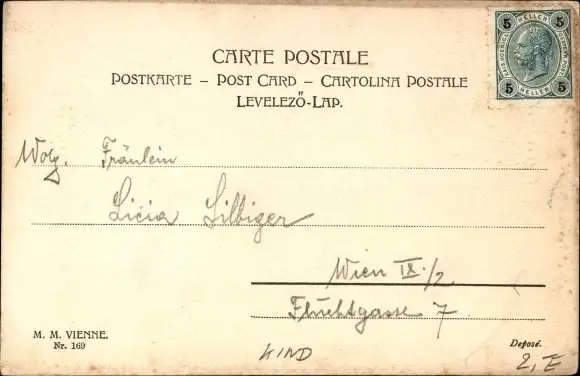 CARTE POSTALE
POSTKARTE – POST CARD – CARTOLINA POSTALE
LEVELEZŐ-LAP.
5 HELLER 5
5 HELLER 5
Wolg. Fräulein
Licia Silbiger
Wien IX./2
Fluchtgasse 7
M. M. VIENNE.
Nr. 169
Deposé.
KIND
2, E